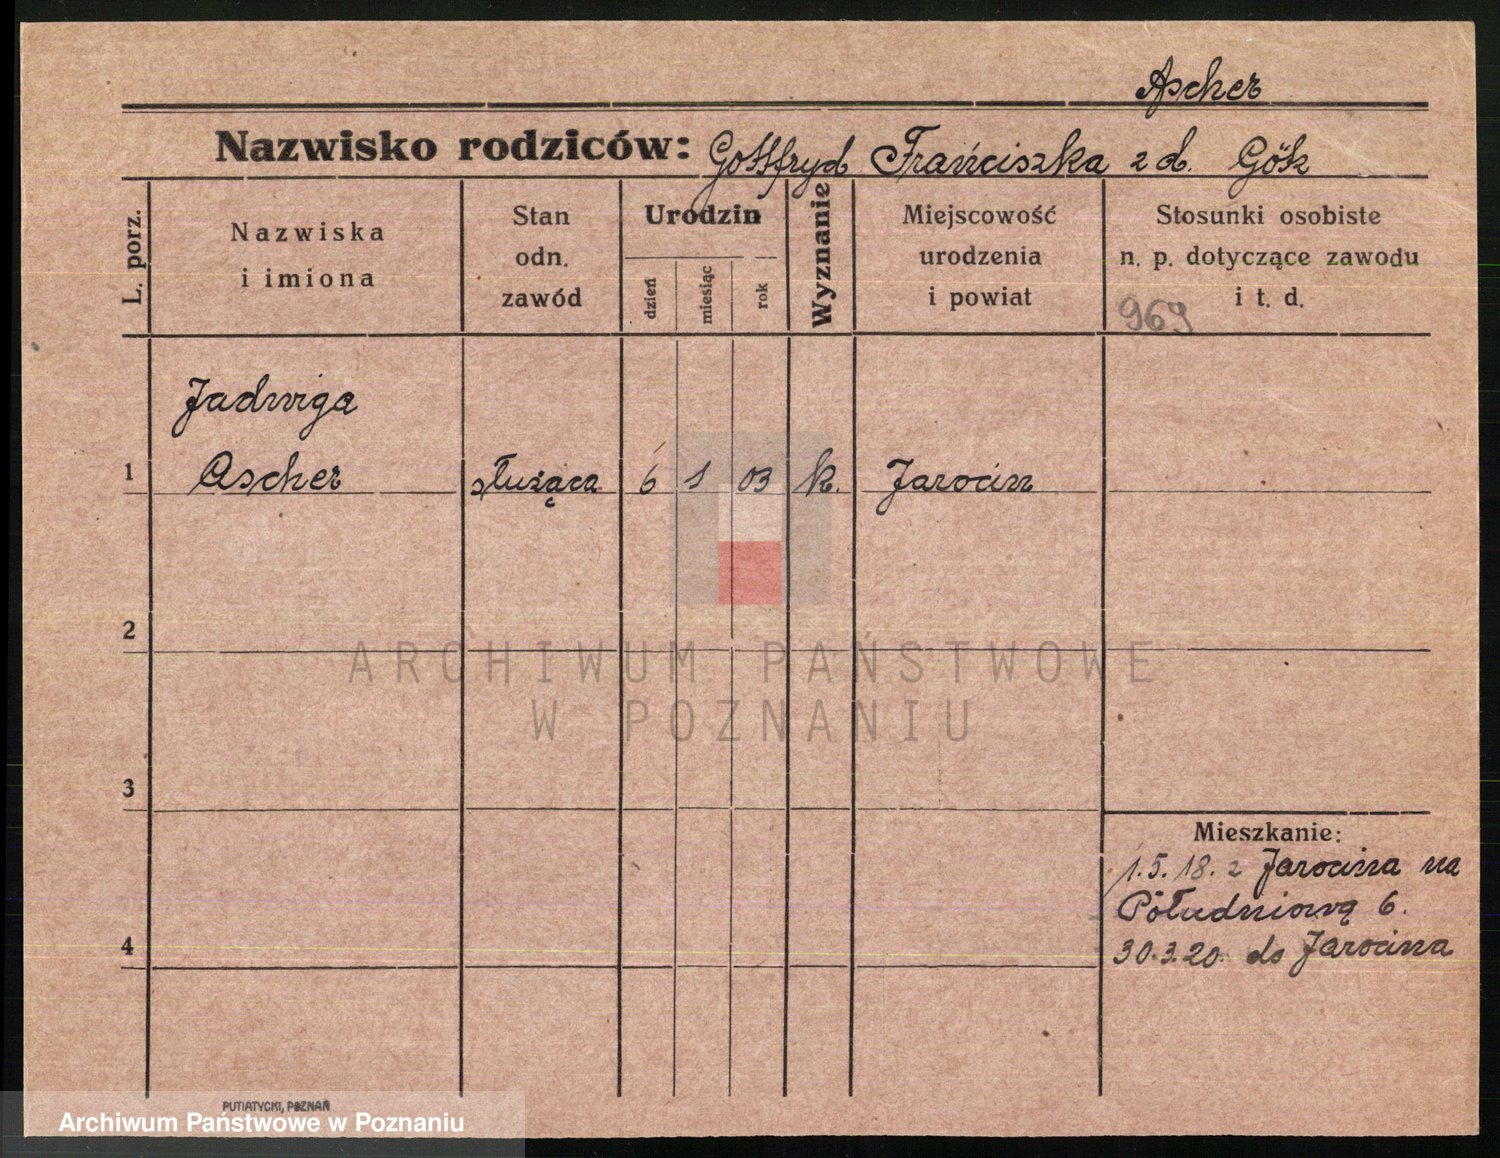 Ascher
Nazwisko rodziców: Gottfryd Franciszka z d. Gök
L. porz.
Nazwiska
i imiona
Stan
odn.
zawód
Urodzin
dzień
miesiąc
rok
Wyznanie
Miejscowość
urodzenia
i powiat
Stosunki osobiste
n. p. dotyczące zawodu
i t. d.
969
Jadwiga
1 Ascher służąca 6 1 03 k. Jarocin
2
ARCHIWUM PAŃSTWOWE
W POZNANIU
3
Mieszkanie:
1.5.18. z Jarocina na
Południową 6.
4
30.3.20. do Jarocina
PUTIATYCKI, POZNAŃ
Archiwum Państwowe w Poznaniu